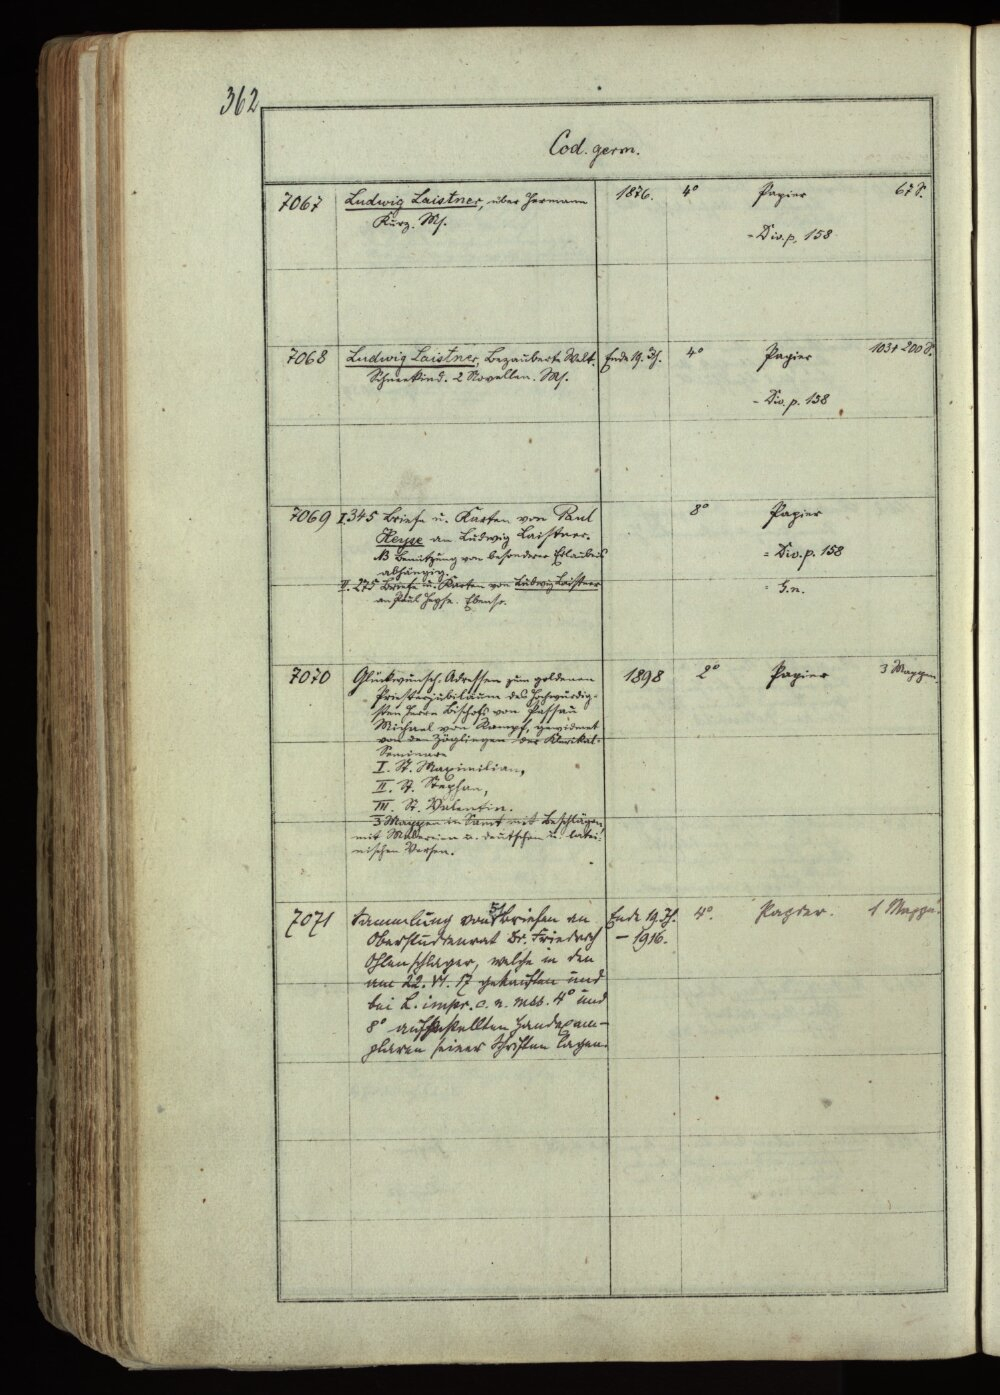 362
Cod. germ.
7067 Ludwig Laistner, über Hermann 1876. 4° Papier 67 S.
Kurz. Ms.
= Div. p. 158
7068 Ludwig Laistner, Bezauberte Welt. Ende 19. Jh. 4° Papier 103 + 200 S.
Schneekind. 2 Novellen. Ms.
= Div. p. 158
7069 I. 345 Briefe u. Karten von Paul 8° Papier
Heyse an Ludwig Laistner.
NB Benützung von besonderer Erlaubnis = Div. p. 158
abhängig.
II. 275 Briefe u. Karten von Ludwig Laistner = G.n.
an Paul Heyse. Ebenso.
7070 Glückwunsch-Adressen zum goldenen 1898 2° Papier 3 Mappen.
Priesterjubiläum des hochwürdig-
sten Herrn Bischofs von Passau
Michael von Rampf, gewidmet
von den Zöglingen der Klerikal-
Seminare
I. St. Maximilian,
II. St. Stephan,
III. St. Valentin.
3 Mappen in Samt mit Beschlägen,
mit Malereien u. deutschen u. latei-
nischen Versen.
7071 Sammlung von 51 Briefen an Ende 19. Jh. 4°. Papier. 1 Mappe.
Oberstudienrat Dr. Friedrich – 1916.
Ohlenschlager, welche in den
am 22. VI. 17 gekauften und
bei L. impr. c. n. mss. 4° und
8° aufgestellten Handexem-
plaren seiner Schriften lagen.